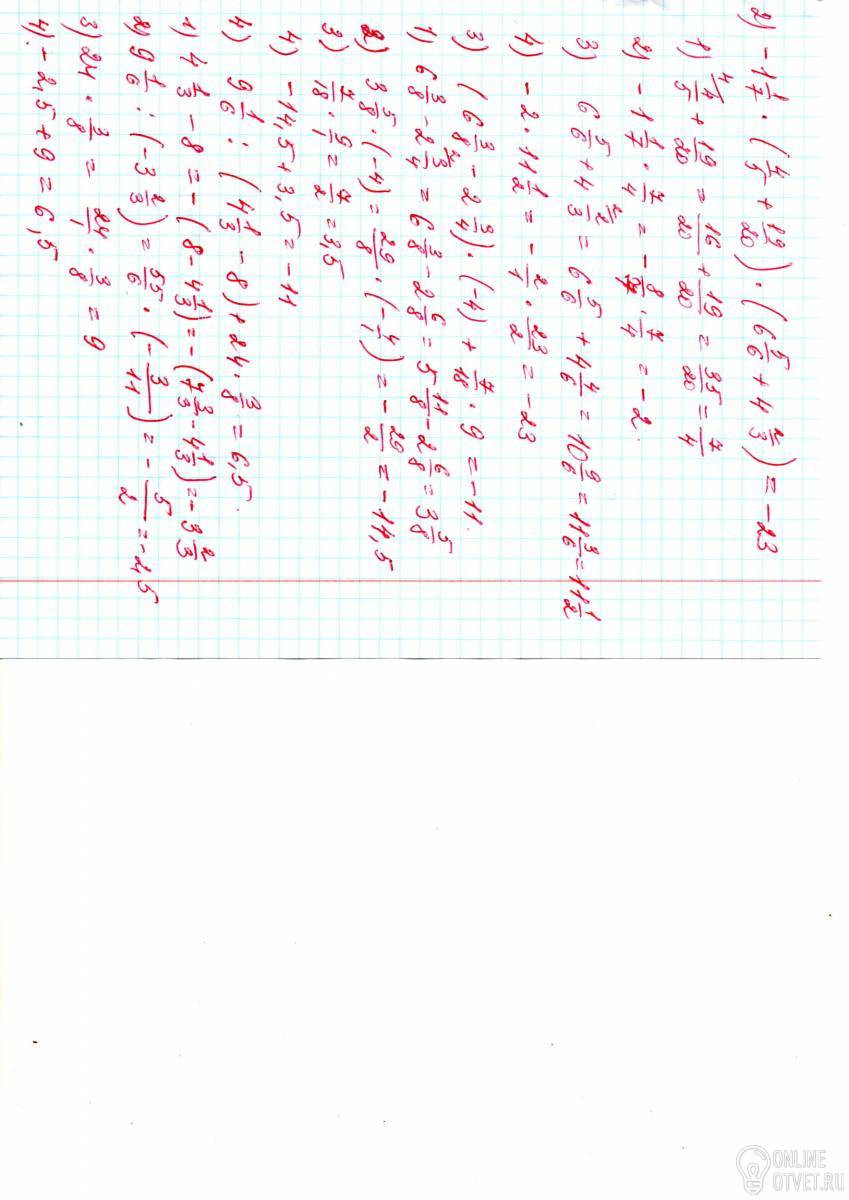 2) -1 1/7 · (4/5 + 19/20) · (6 5/6 + 4 2/3) = -23
1) 4/5 + 19/20 = 16/20 + 19/20 = 35/20 = 7/4
2) -1 1/7 · 7/4 = -8/7 · 7/4 = -2.
3) 6 5/6 + 4 2/3 = 6 5/6 + 4 4/6 = 10 9/6 = 11 3/6 = 11 1/2
4) -2 · 11 1/2 = -2/1 · 23/2 = -23
3) (6 3/8 - 2 3/4) · (-4) + 7/18 · 9 = -11.
1) 6 3/8 - 2 3/4 = 6 3/8 - 2 6/8 = 5 11/8 - 2 6/8 = 3 5/8
2) 3 5/8 · (-4) = 29/8 · (-4/1) = -29/2 = -14,5
3) 7/18 · 9/1 = 7/2 = 3,5
4) -14,5 + 3,5 = -11
4) 9 1/6 : (4 1/3 - 8) + 24 · 3/8 = 6,5.
1) 4 1/3 - 8 = -(8 - 4 1/3) = -(7 3/3 - 4 1/3) = -3 2/3
2) 9 1/6 : (-3 2/3) = 55/6 · (-3/11) = -5/2 = -2,5
3) 24 · 3/8 = 24/1 · 3/8 = 9
4) -2,5 + 9 = 6,5
ONLINE
OTVET.RU